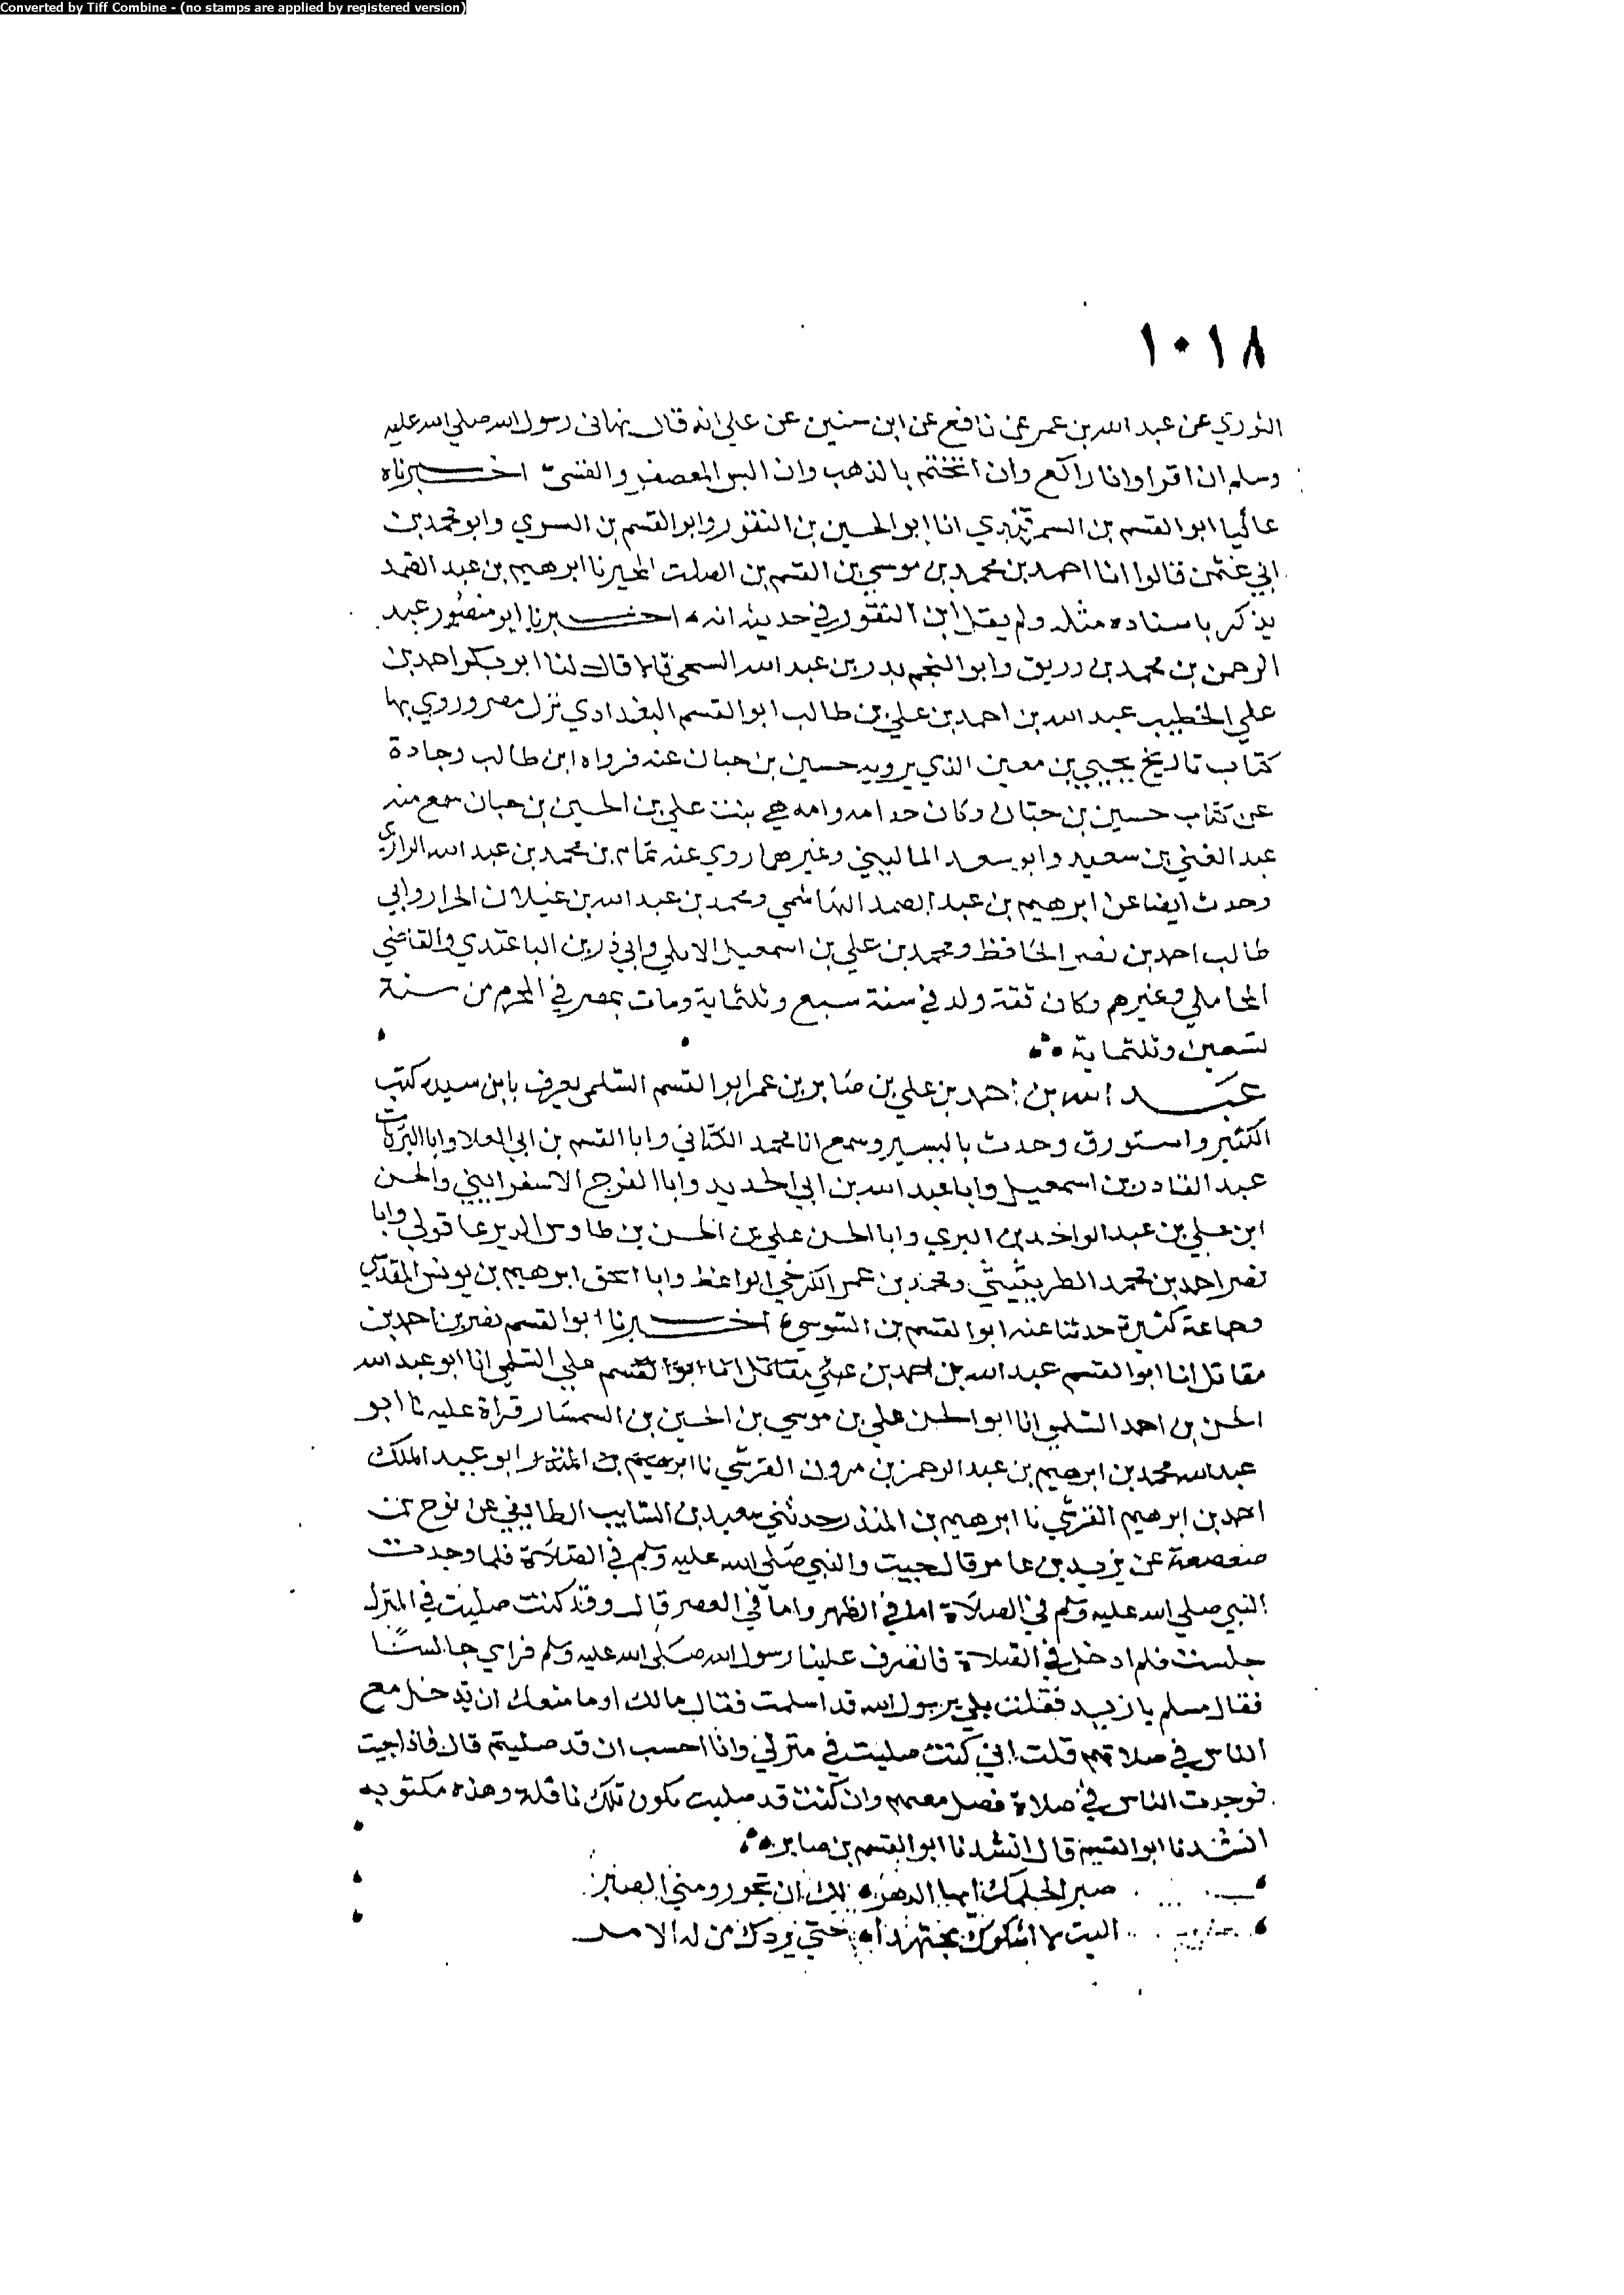 Converted by Tiff Combine - (no stamps are applied by registered version)
١٠١٨
الثوري عن عبد الله بن عمر عن نافع عن ابن حنين عن علي انه قال نهاني رسول الله صلي الله عليه
وسلم ان اقرا وانا راكع وان اتختم بالذهب وان البس المعصفر والقسيّ اخبرناه
عاليا ابو القسم بن السمرقندي انا ابو الحسين بن النقور وابو القسم بن البسري وابو محمد بن
ابي عثمن قالوا انا احمد بن محمد بن موسي بن القسم بن الصلت المجبر نا ابرهيم بن عبد الصمد
يذكر باسناده مثله ولم يقل ابن النقور في حديثه انه اخبرنا ابو منصور عبد
الرحمن بن محمد بن زريق وابو النجم بدر بن عبد الله السمعي قالا قال لنا ابو بكر احمد بن
علي الخطيب عبد الله بن احمد بن علي بن طالب ابو القسم البغدادي نزل مصر وروي بها
كتاب تاريخ يحيي بن معين الذي يرويه حسين بن حبان عنه فرواه ابن طالب وجادة
عن كتاب حسين بن حبان وكان جد امه وامه هي بنت علي بن الحسين بن حبان سمع منه
عبد الغني بن سعيد وابو سعد الماليني وغيرهما روي عنه تمام بن محمد بن عبد الله الرازي
وحدث ايضا عن ابرهيم بن عبد الصمد الهاشمي ومحمد بن عبد الله بن غيلان الخزاز وابي
طالب احمد بن نصر الحافظ ومحمد بن علي بن اسمعيل الابلي وابي ذر بن الباغندي والقاضي
المحاملي وغيرهم وكان ثقة ولد في سنة سبع وثلثماية ومات بمصر في المحرم من سنة
تسعين وثلثماية
عبد الله بن احمد بن علي بن صابر بن عمر ابو القسم السلمي يعرف بابن سيده كتب
الكثير واستورق وحدث باليسير وسمع ابا محمد الكتاني وابا القسم بن ابي العلا وابا البركات
عبد القادر بن اسمعيل وابا عبد الله بن ابي الحديد وابا الفرج الاسفراييني والحسن
ابن علي بن عبد الواحد بن البري وابا الحسن علي بن الحسن بن طاوس الدير عاقولي وابا
نصر احمد بن محمد الطريثيثي ومحمد بن عمر الكرخي الواعظ وابا اسحق ابرهيم بن يونس المقدسي
وجماعة كثيرة حدثنا عنه ابو القسم بن السوسي اخبرنا ابو القسم نصر بن احمد بن
مقاتل انا ابو القسم عبد الله بن احمد بن علي مقاتل انا ابو القسم علي السلمي انا ابو عبد الله
الحسن بن احمد السلمي انا ابو الحسن علي بن موسي بن الحسين بن السمسار قراة عليه نا ابو
عبد الله محمد بن ابرهيم بن عبد الرحمن بن مرون القرشي نا ابرهيم بن المنذر ابو عبيد الملك
احمد بن ابرهيم القرشي نا ابرهيم بن المنذر حدثني سعيد بن السايب الطايفي عن نوح بن
صعصعة عن يزيد بن عامر قال جيت والنبي صلي الله عليه وسلم في الصلاة فلما وجدت
النبي صلي الله عليه وسلم في الصلاة اما في الظهر واما في العصر قال وقد كنت صليت في المنزل
جلست فلم ادخل في الصلاة فانصرف علينا رسول الله صلي الله عليه وسلم فراي جالسًا
فقال مسلم يا يزيد فقلت بلي يرسول الله قد اسلمت فقال مالك او ما منعك ان تدخل مع
الناس في صلاتهم قلت اني كنت صليت في منزلي وانا احسب ان قد صليتم قال فاذا جيت
فوجدت الناس في صلاة فصل معهم وان كنت قد صليت تكون تلك نافلة وهذه مكتوبه
انشدنا ابو القسم قال انشدنا ابو القسم بن صابر
صبر الحكمك ايها الدهر لك ان تجور ومني الصبر
اليت لا اشكوك مجتهدا حتي يردك من له الامر